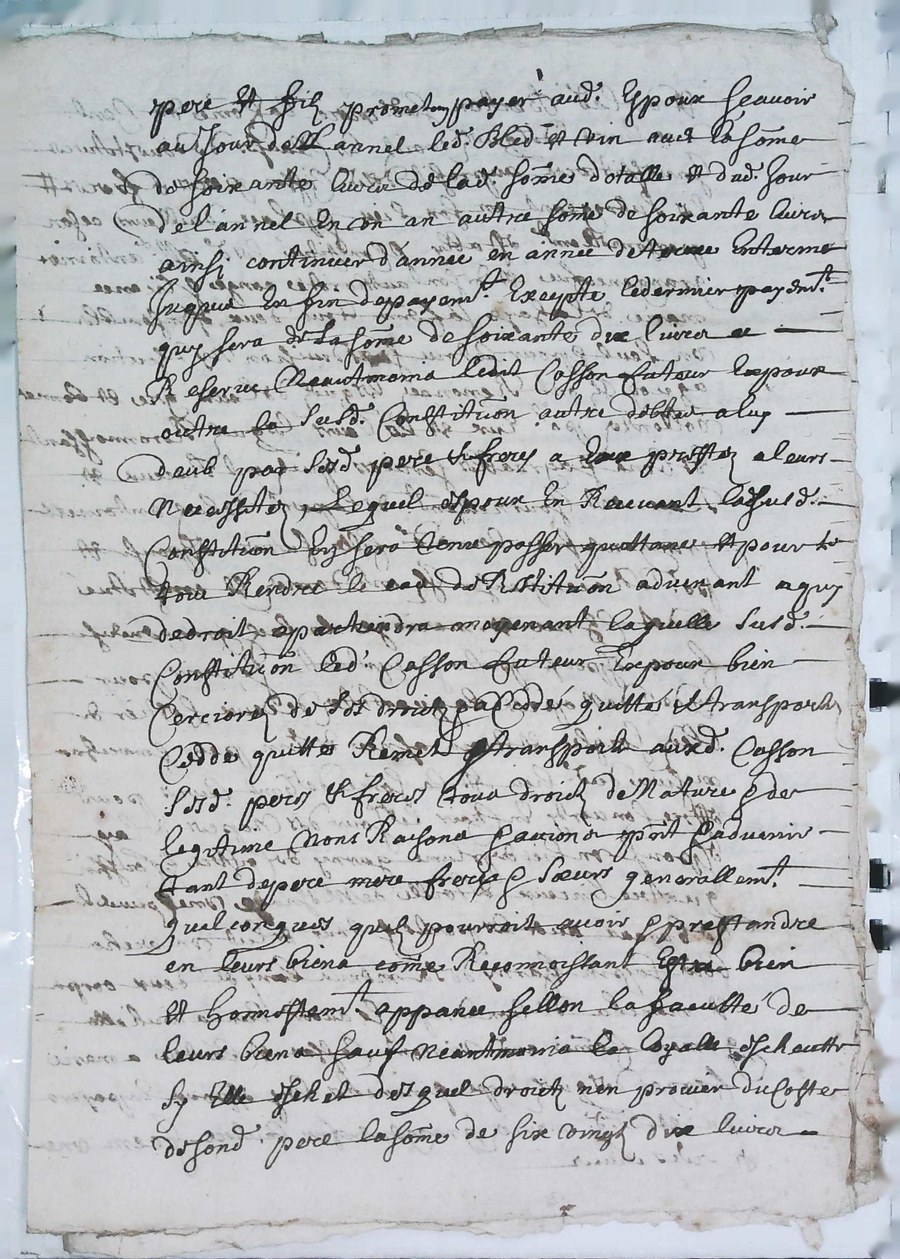 pere et filz prometent payer aud. Espoux scavoir
au Jour de l'annel led. Bled et vin avec la some
de soixante livres de lad. some dotalle et dud. Jour
de l'annel En un an autre some de soixante livres
ainsi continuer d'année en année de terme En terme
Jusques En fin de payemt. Excepte le dernier payemt.
quy sera de la some de soixante dix livres
Reserve Neautmoins ledit Casson futeur Expoux
outre la susd. Constitution autre debte a luy
deub par sesd. pere et freres a eux prestez a leurs
Necessitez, Lequel espoux En Recevant lad susd.
Constitution luy sera tenu passer quittance et pour le
tout Rendre le cas de Restitution advenant a quy
de droit apartiendra moyenant laquelle susd.
Constitution led. Casson futeur Expoux bien
Cerciore de ses droictz a Cedde quitte et transporte
Cedde quitte Remet et transporte ausd. Casson
sesd. pere et freres tous droictz de Nature et de
legitime Noms Raisons et actions pnt et advenir
tant de pere mere freres et sœurs generallemt.
quelconques quil pourroit avoir et prestandre
en leurs biens come Recognoissant Estre bien
et honnestemt. appanee sellon la faculte de
leurs biens sauf neantmoins la loyalle escheutte
sy Elle eschet desquel droictz nen provier du Coste
de sond. pere la some de six vingtz dix livres